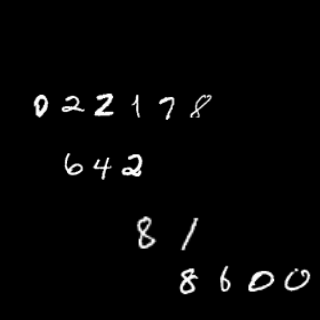 022178
642
81
8600